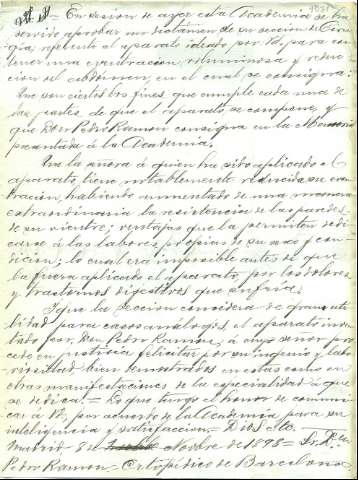 En sesion de ayer esta Academia se ha
servido aprobar un dictámen de su seccion de Ciru-
gia, referente al aparato ideado por V., para con-
tener una eventracion voluminosa y reduc-
cion del abdomen, en el cual se consigna:
Que son ciertos los fines que cumple cada una de
las partes, de que el aparato se compone, y
que Don Pedro Ramon consigna en la Memoria
presentada á la Academia.
Que la señora á quien ha sido aplicado el
aparato, tiene notablemente reducida su even-
tracion, habiendo aumentado de una manera
extraordinaria la resistencia de las paredes
de su vientre; ventajas que la permiten dedi-
carse á las labores propias de su sexo y con-
dicion; lo cual era imposible antes de que
la fuera aplicado el aparato, por los dolores
y trastornos digestivos que sufria.
Y que la Seccion considera de gran uti-
lidad para casos analogos el aparato inven-
tado por Don Pedro Ramon, á cuyo señor pro-
cede en justicia felicitar por su ingenio y labo-
riosidad bien demostrados en esta como en
otras manifestaciones de la especialidad á que
se dedica. = Lo que tengo el honor de comuni-
car á V., por acuerdo de la Academia para su
inteligencia y satisfaccion = Dios &ta. =
Madrid 8 de Novbre de 1898 = Sr. D.
Pedro Ramon = Ortopédico de Barcelona